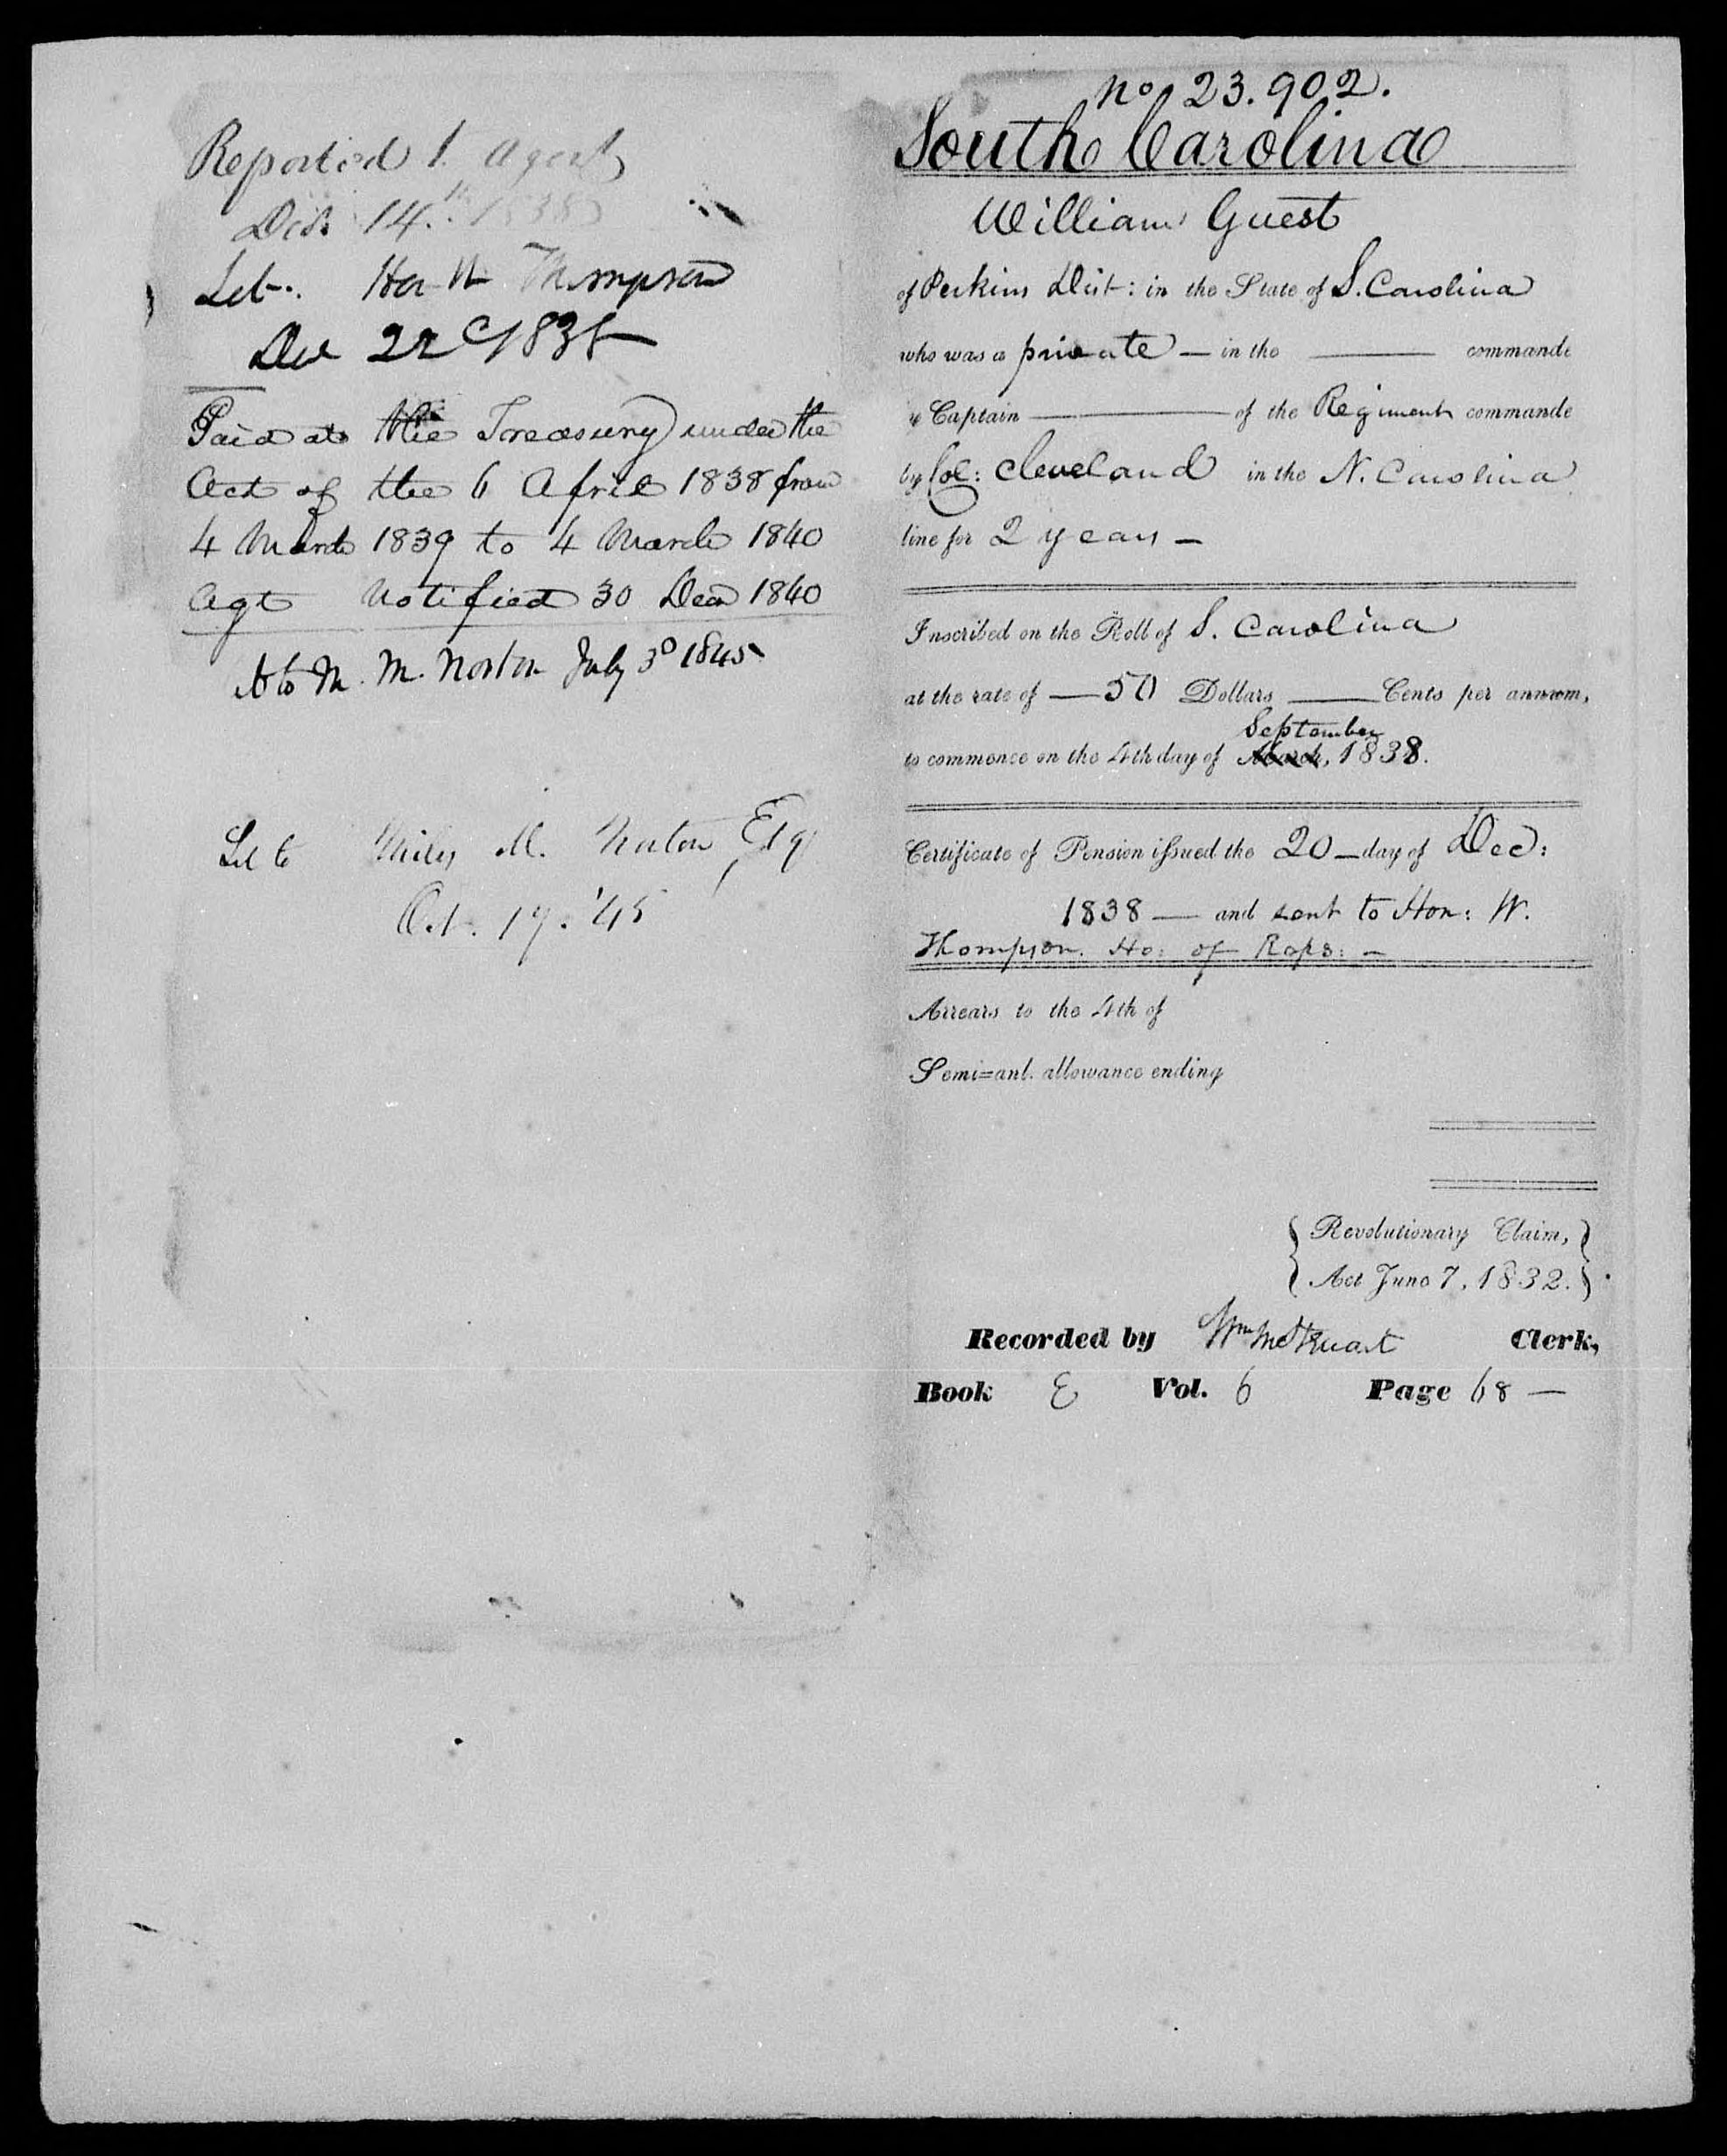 Reported t. Agent
Dec. 14th. 1838
Let. Hon W Thompson
Dec 22d 1838
Paid at the Treasury under the
Act of the 6 April 1838 from
4 March 1839 to 4 March 1840
Agt Notified 30 Dec 1840
to M. M. Norton July 3d 1845
Let to Miles M. Norton Esqr
Oct. 17. '45
No 23.902.
South Carolina
William Guest
of Perkins Dist: in the State of S. Carolina
who was a private — in the — commande
y Captain — of the Regiment commande
by Col: Cleveland in the N. Carolina
line for 2 years —
Inscribed on the Roll of S. Carolina
at the rate of — 50 Dollars — Cents per annum,
September
to commence on the 4th day of March, 1838.
Certificate of Pension issued the 20 — day of Dec:
1838 — and sent to Hon: W.
Thompson. Ho: of Reps: —
Arrears to the 4th of
Semi=anl. allowance ending
Revolutionary Claim,
Act June 7, 1832.
Recorded by Wm Clerk,
Book E Vol. 6 Page 68 —